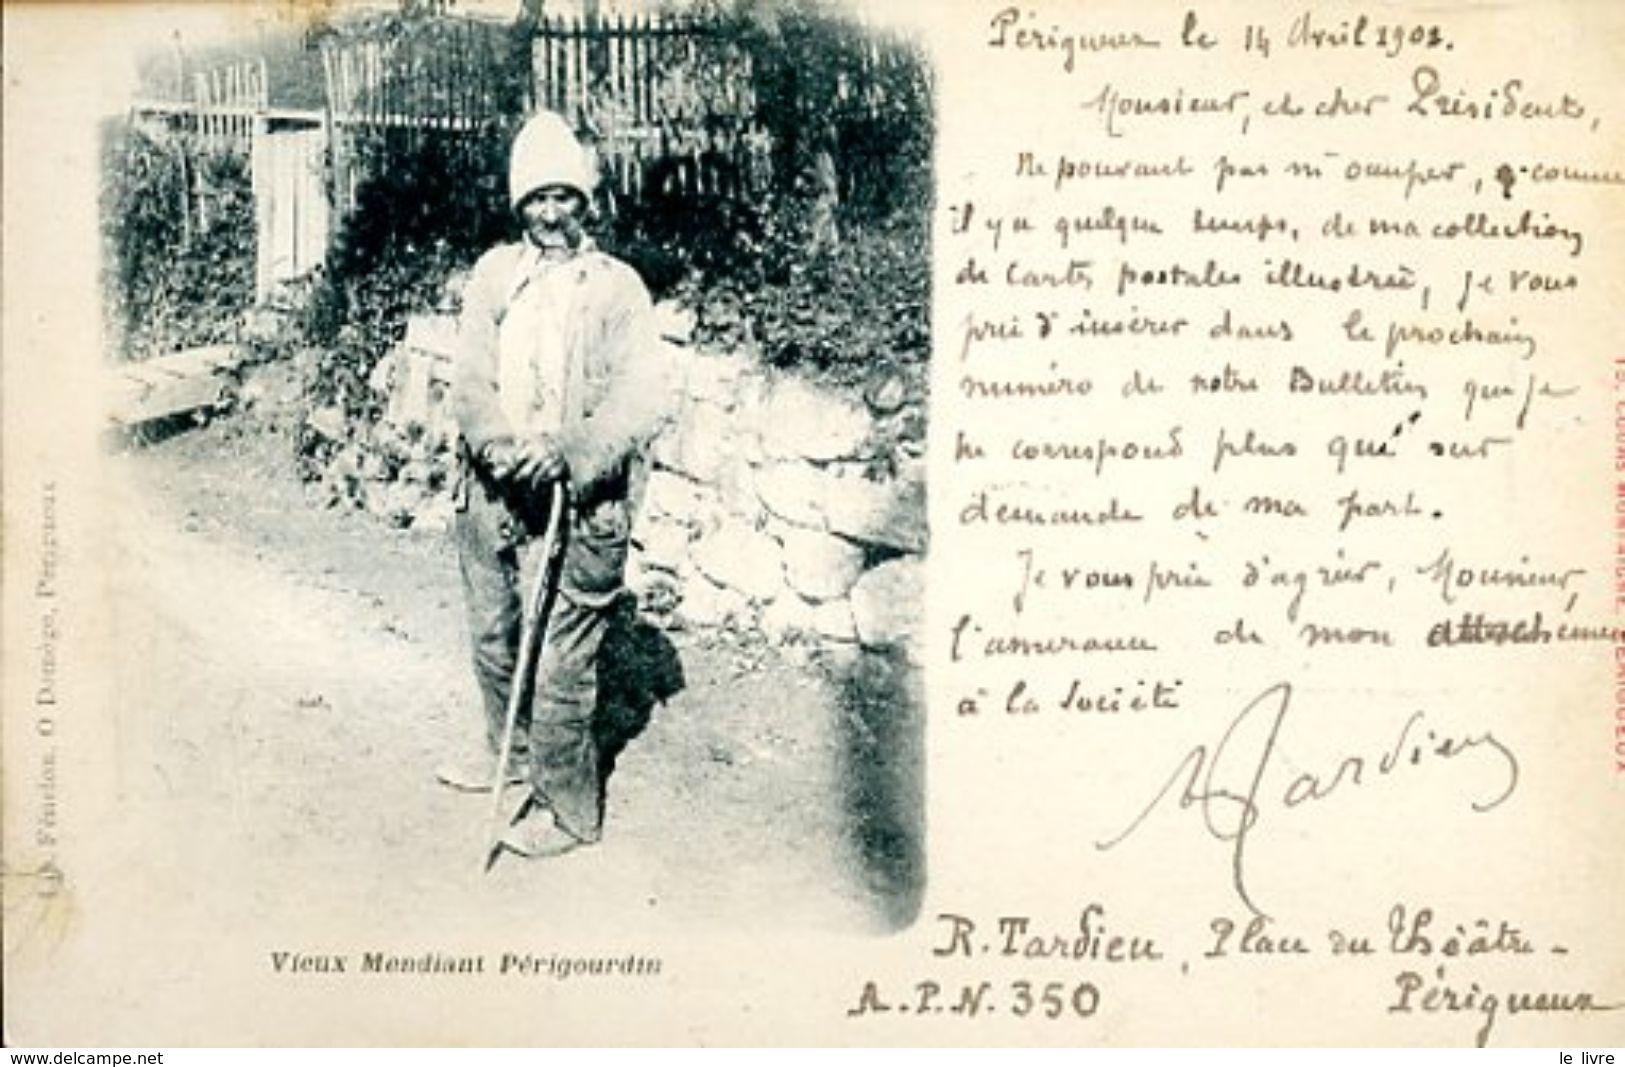 Périgueux le 14 Avril 1902.
Monsieur, et cher Président,
Ne pouvant pas m'occuper, comme
il y a quelque temps, de ma collection
de Cartes postales illustrée, je vous
prie d'insérer dans le prochain
numéro de notre Bulletin que je
ne correspond plus que sur
demande de ma part.
Je vous prie d'agréer, Monsieur,
l'assurance de mon attachement
à la Société
Tardieu
R. Tardieu, Place du Théâtre -
A.P.N. 350 Périgueux
Vieux Mendiant Périgourdin
Fénelon. O Domège, Périgueux
15, COURS MONTAIGNE PERIGUEUX
www.delcampe.net
le livre